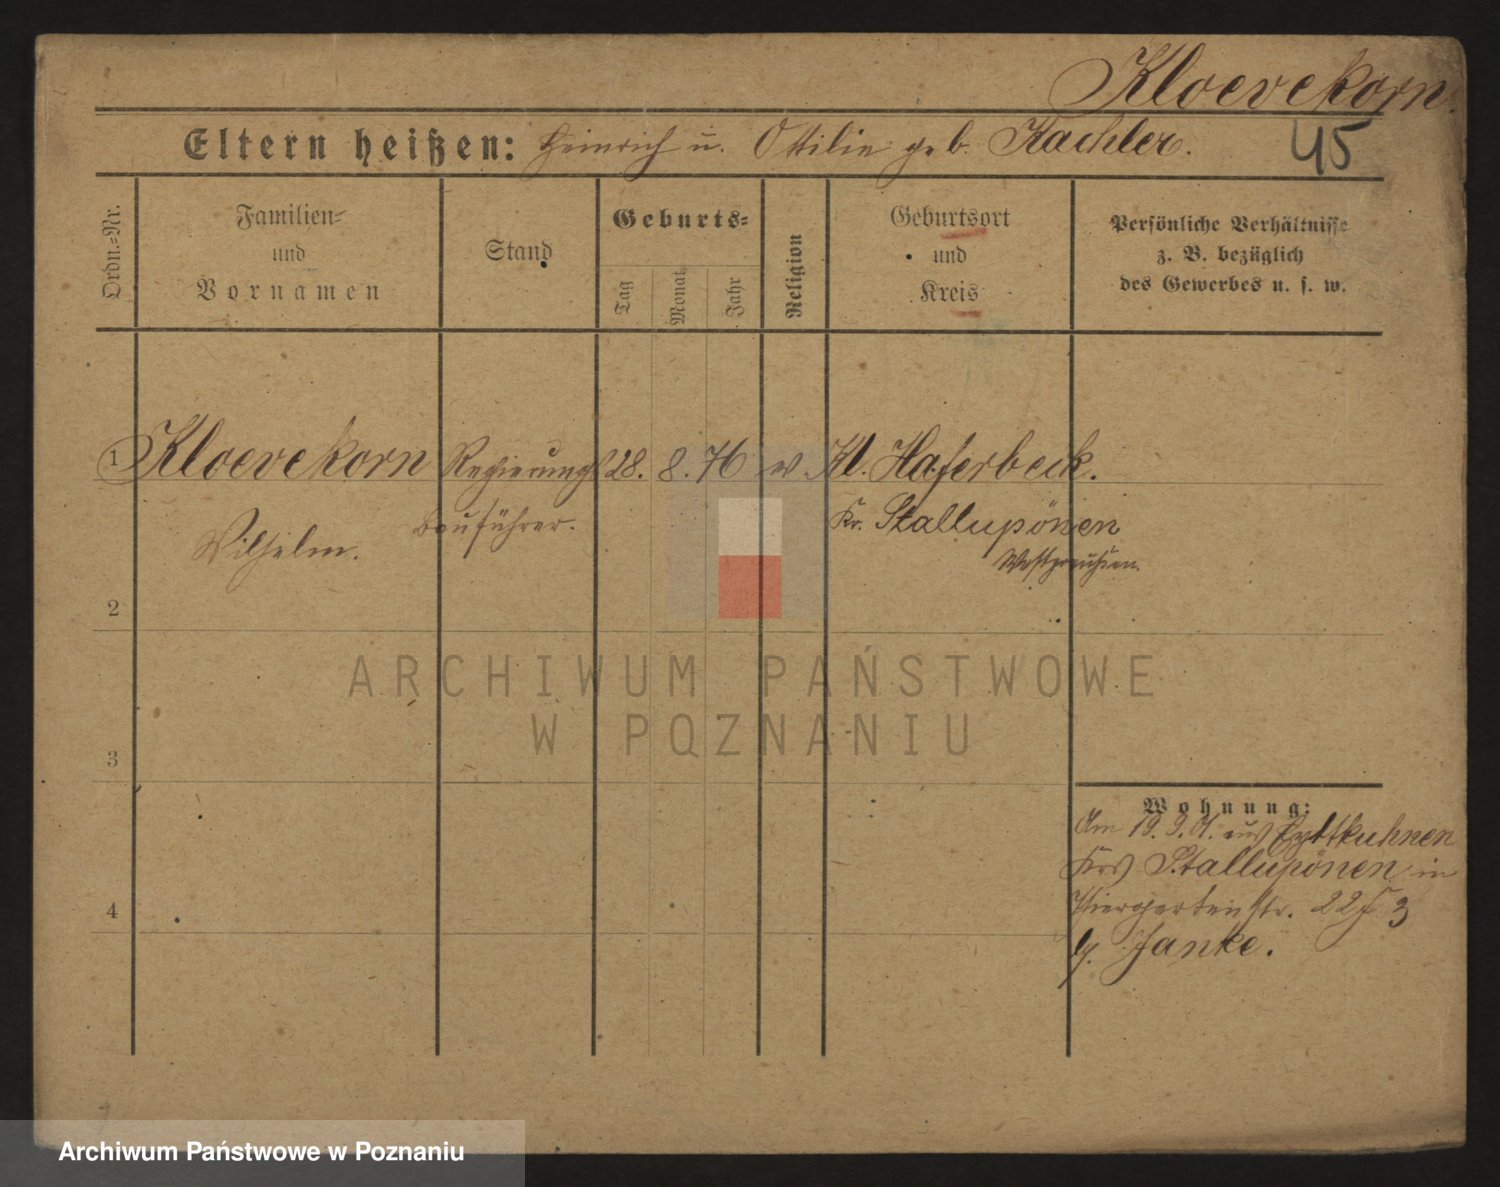 Kloevekorn.
Eltern heißen: Heinrich u. Ottilie geb. Kachler.
45
Ordn.-Nr.
Familien-
und
Vornamen
Stand
Geburts-
Tag
Monat
Jahr
Religion
Geburtsort
und
Kreis
Persönliche Verhältnisse
z. B. bezüglich
des Gewerbes u. s. w.
1 Kloevekorn Regierungs 28. 8. 76 ev. Kl. Haferbeck.
Wilhelm. bauführer. Kr. Stallupönen
Westpreußen.
2
3
4
Wohnung:
Am 19.9.01. aus Eydtkuhnen
Krs Stallupönen in
Thiergartenstr. 22 3
b. Janke.
ARCHIWUM PAŃSTWOWE
W POZNANIU
Archiwum Państwowe w Poznaniu